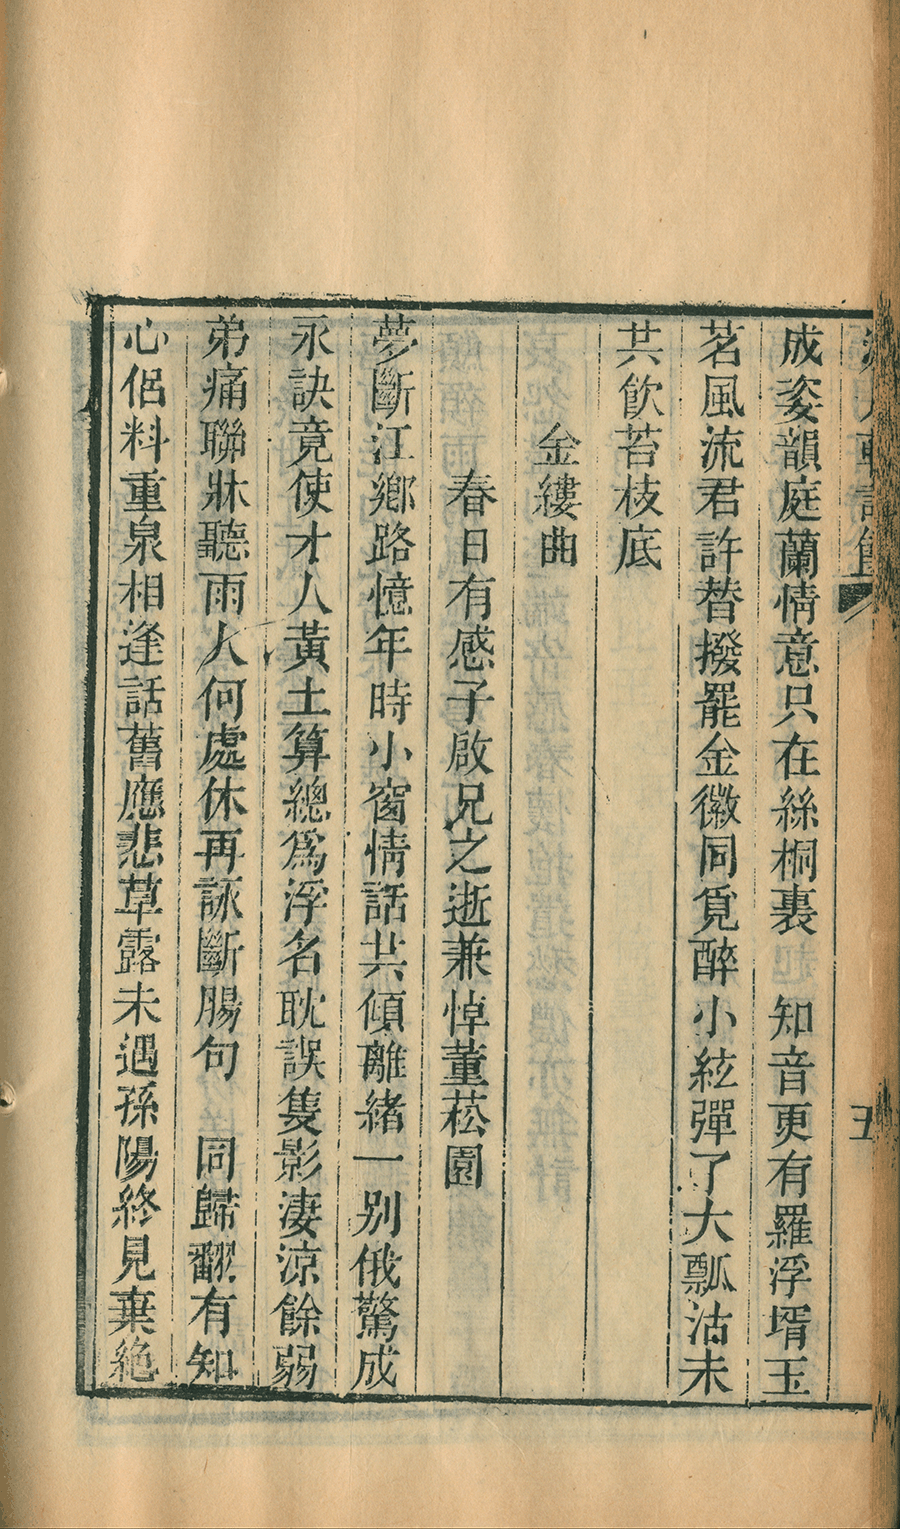 成姿韻庭蘭情意只在絲桐裏　知音更有羅浮壻玉
茗風流君許替撥罷金徽同覓醉小絃彈了大瓢沽未
共飲苔枝底
金縷曲
春日有感子啟兄之逝兼悼董菘園
夢斷江鄉路憶年時小窗情話共傾離緒一別俄驚成
永訣竟使才人黃土算總為浮名耽誤隻影淒涼餘弱
弟痛聯牀聽雨人何處休再詠斷腸句　同歸翻有知
心侶料重泉相逢話舊應悲草露未遇孫陽終見棄絶